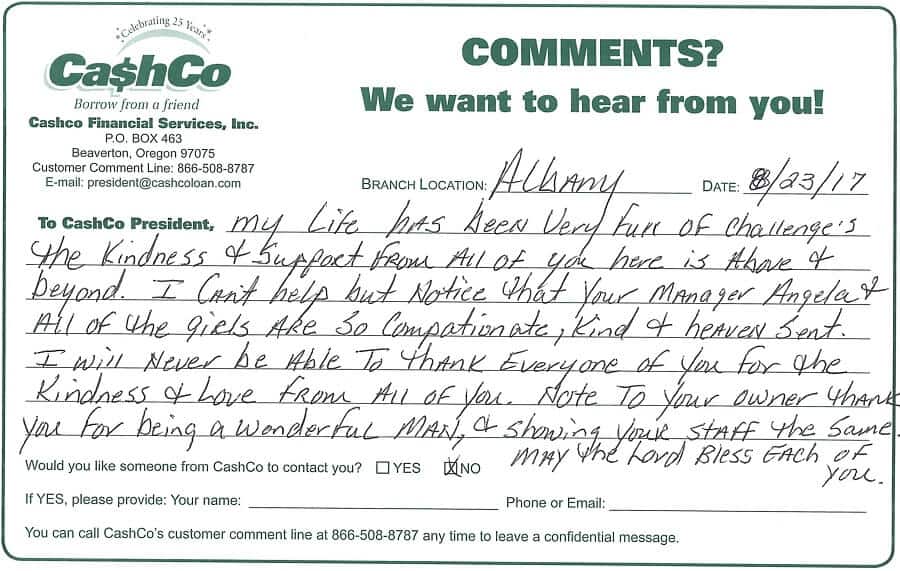 Celebrating 25 Years
Ca$hCo
Borrow from a friend
Cashco Financial Services, Inc.
P.O. BOX 463
Beaverton, Oregon 97075
Customer Comment Line: 866-508-8787
E-mail: president@cashcoloan.com
COMMENTS?
We want to hear from you!
BRANCH LOCATION: Albany DATE: 8/23/17
To CashCo President, my Life has been Very full of challenge's
the Kindness & Support from All of you here is Above &
beyond. I Can't help but Notice that your Manager Angela &
All of the girls Are So Compationate, Kind & heaven Sent.
I will Never be Able To thank Everyone of you for the
Kindness & Love from All of you. Note To your owner thank
you for being a wonderful Man, & showing your staff the same.
May the Lord Bless Each of
you.
Would you like someone from CashCo to contact you? YES NO
If YES, please provide: Your name: Phone or Email:
You can call CashCo's customer comment line at 866-508-8787 any time to leave a confidential message.